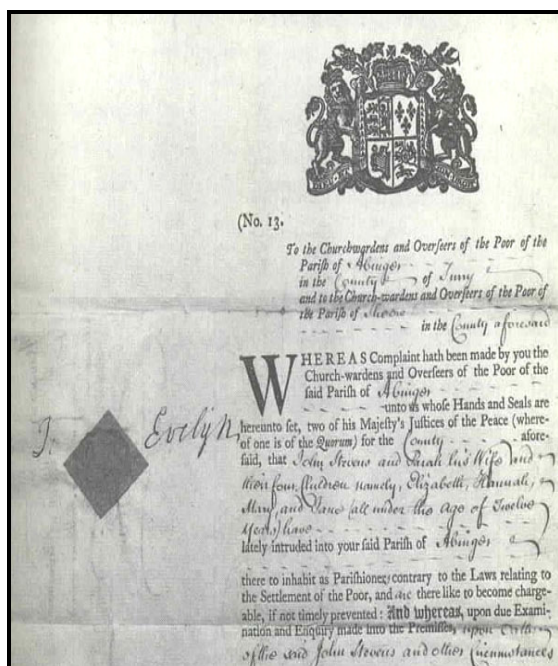 (No. 13.
To the Churchwardens and Overſeers of the Poor of the
Pariſh of Abinger
in the County of Surry
and to the Church-wardens and Overſeers of the Poor of
the Pariſh of Sheere
in the County aforesaid
WHEREAS Complaint hath been made by you the
Church-wardens and Overſeers of the Poor of the
ſaid Pariſh of Abinger
unto us whoſe Hands and Seals are
J. Evelyn
hereunto ſet, two of his Majeſty's Juſtices of the Peace (where-
of one is of the Quorum) for the County afore-
ſaid, that John Stevens and Sarah his Wife and
their four Children namely, Elizabeth, Hannah,
Mary, and Jane (all under the Age of Twelve
Years) have
lately intruded into your ſaid Pariſh of Abinger
there to inhabit as Pariſhioners, contrary to the Laws relating to
the Settlement of the Poor, and are there like to become charge-
able, if not timely prevented: And whereas, upon due Exami-
nation and Enquiry made into the Premiſſes, upon Oath
of the said John Stevens and other Circumstances